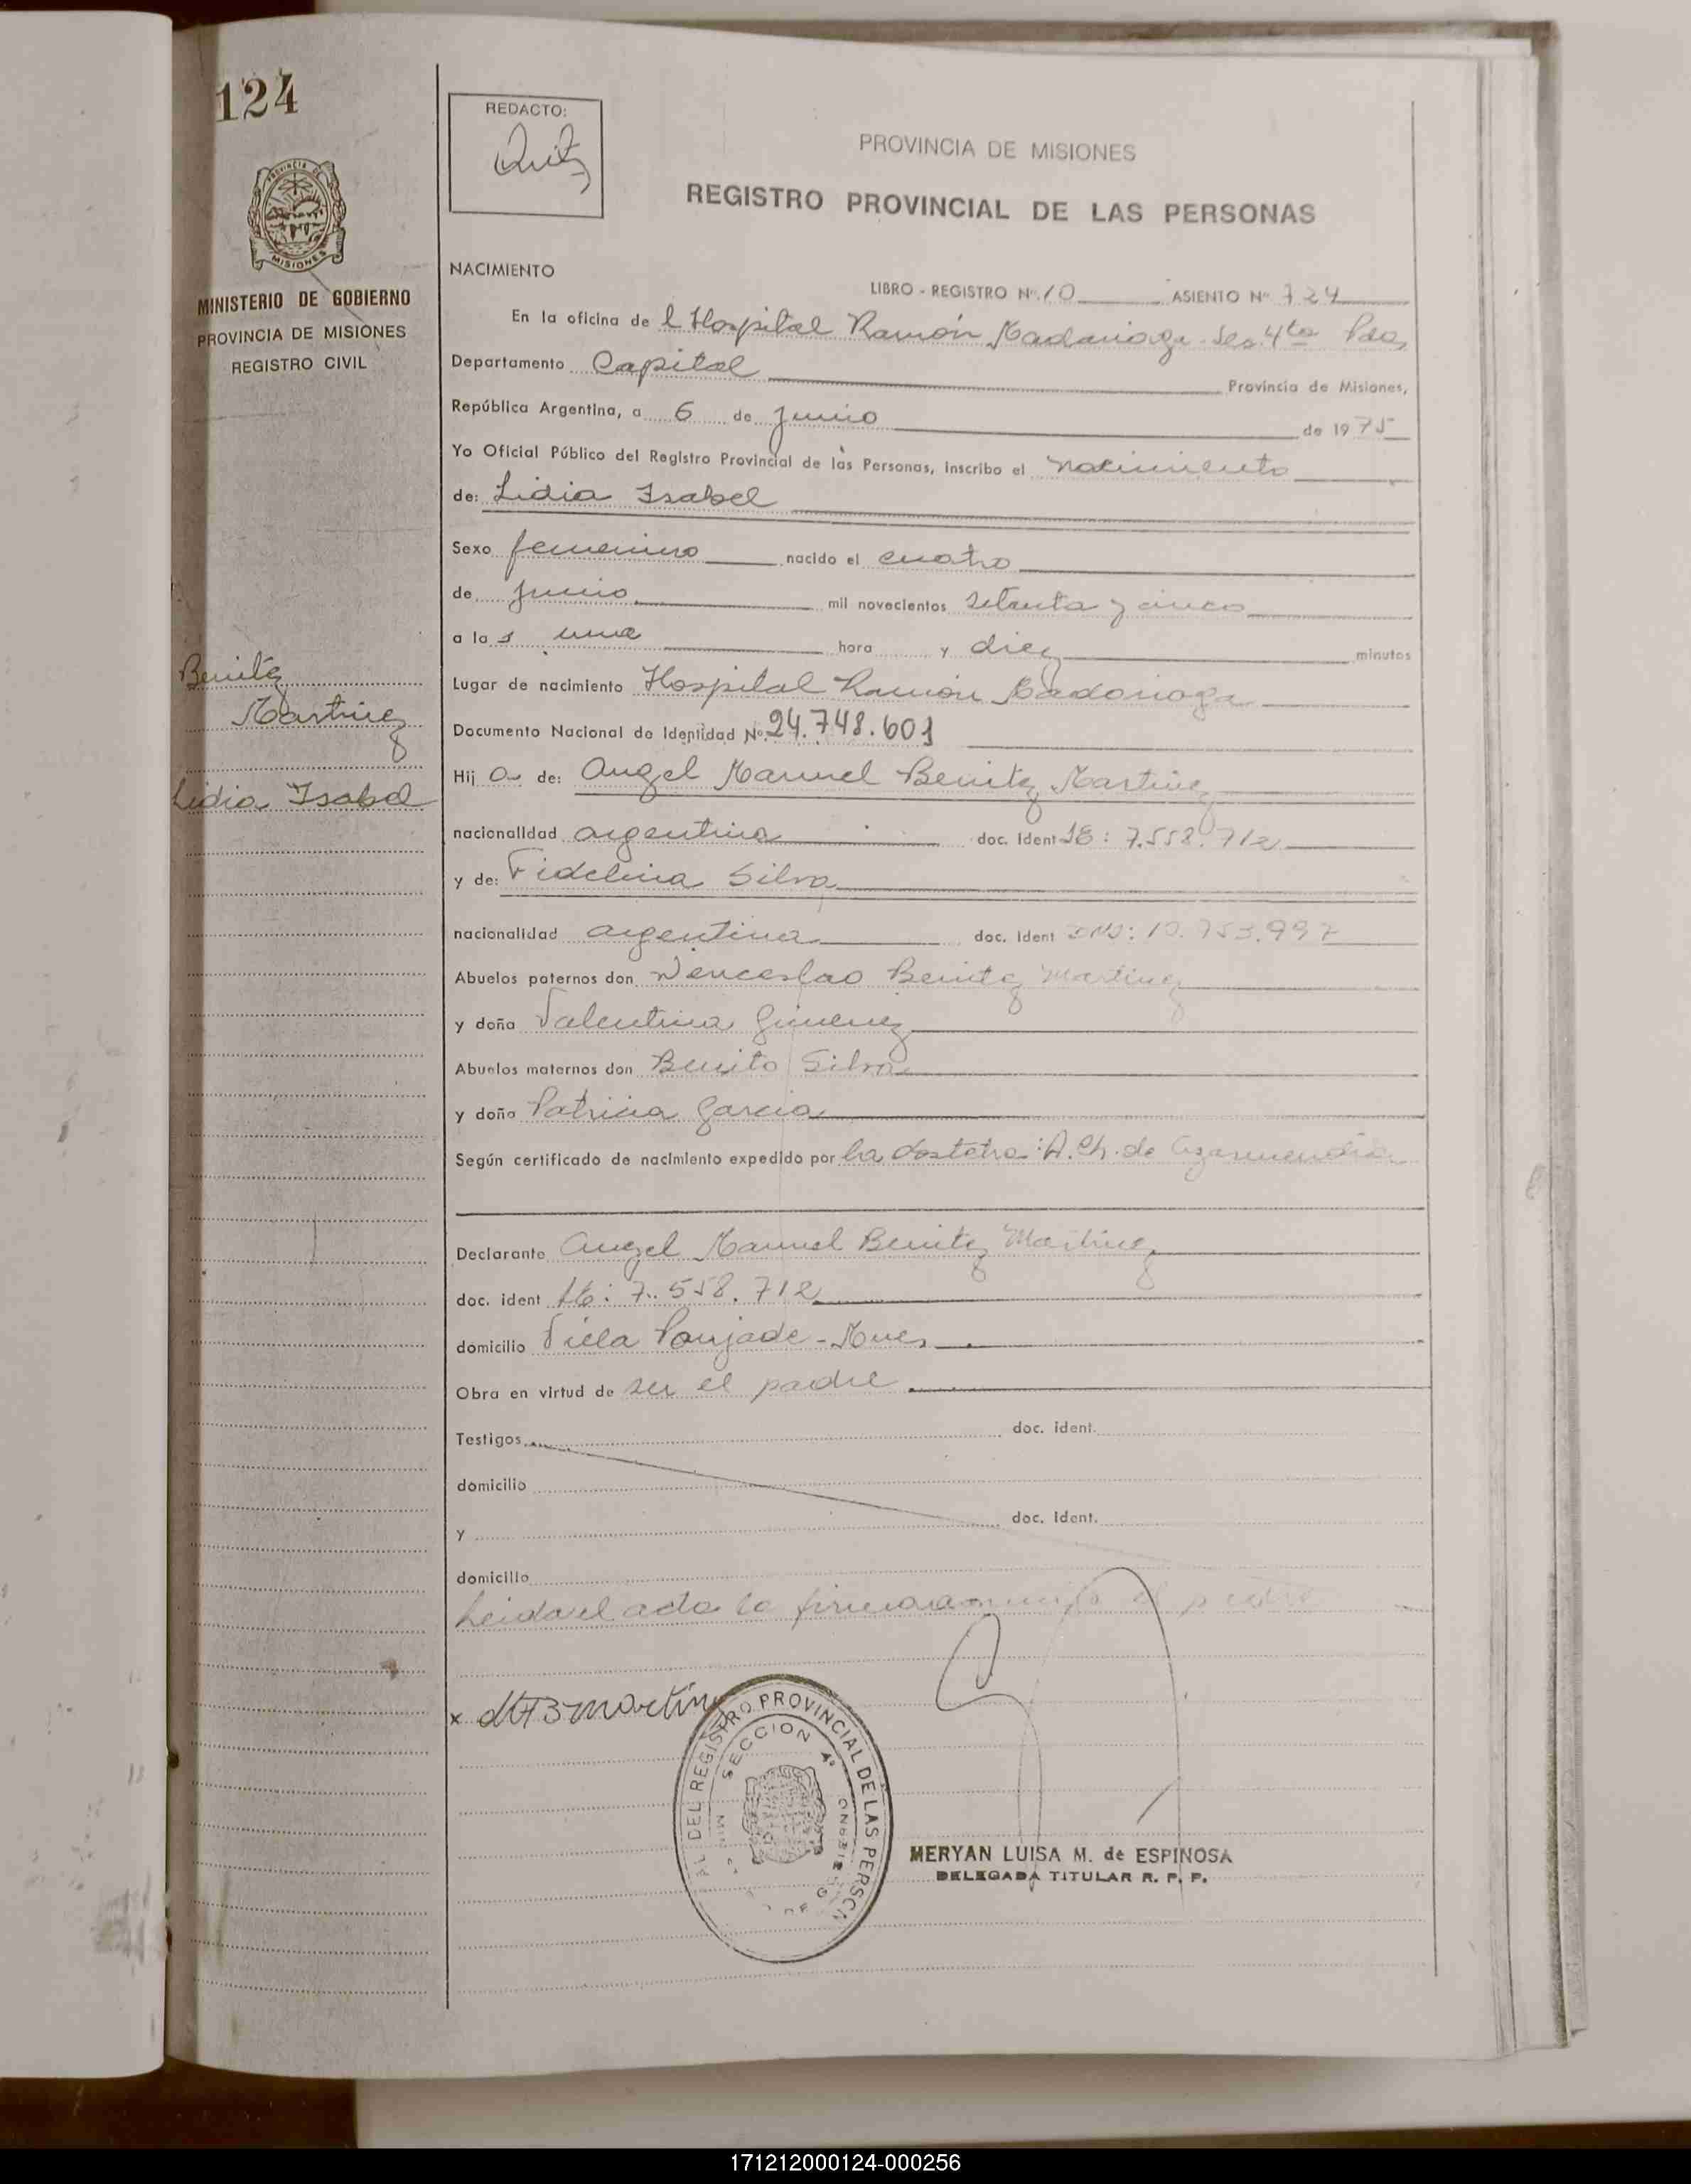 124
REDACTO:
PROVINCIA DE MISIONES
REGISTRO PROVINCIAL DE LAS PERSONAS
PROVINCIA DE
MISIONES
MINISTERIO DE GOBIERNO
PROVINCIA DE MISIONES
REGISTRO CIVIL
NACIMIENTO
LIBRO - REGISTRO Nº 10 ASIENTO Nº 724
En la oficina de l Hospital Ramón Madariaga Sec. 4ta Pdas
Departamento Capital Provincia de Misiones,
República Argentina, a 6 de junio de 1975
Yo Oficial Público del Registro Provincial de las Personas, inscribo el nacimiento
de: Lidia Isabel
Sexo femenino nacido el cuatro
de junio mil novecientos setenta y cinco
a la s una hora y diez minutos
Benitez
Martinez
Lidia Isabel
Lugar de nacimiento Hospital Ramón Madariaga
Documento Nacional de Identidad Nº 24.748.601
Hij a de: Angel Manuel Benitez Martinez
nacionalidad argentina doc. ident 7.558.712
y de: Fidelina Silva
nacionalidad argentina doc. ident DNI: .753.997
Abuelos paternos don Wenceslao Benitez Martinez
y doña Valentina Gimenez
Abuelos maternos don Benito Silva
y doña Patricia Garcia
Según certificado de nacimiento expedido por la obstetra: A. Ch. de Azarmendia
Declarante Angel Manuel Benitez Martinez
doc. ident 7.558.712
domicilio Villa Poujade - Mnes
Obra en virtud de ser el padre
Testigos doc. ident.
domicilio
y doc. ident.
domicilio
Leida el acta la firma conmigo el padre
x
DEL REGISTRO PROVINCIAL DE LAS PERSON
SECCION 4º
MERYAN LUISA M. de ESPINOSA
DELEGADA TITULAR R. P. P.
171212000124-000256